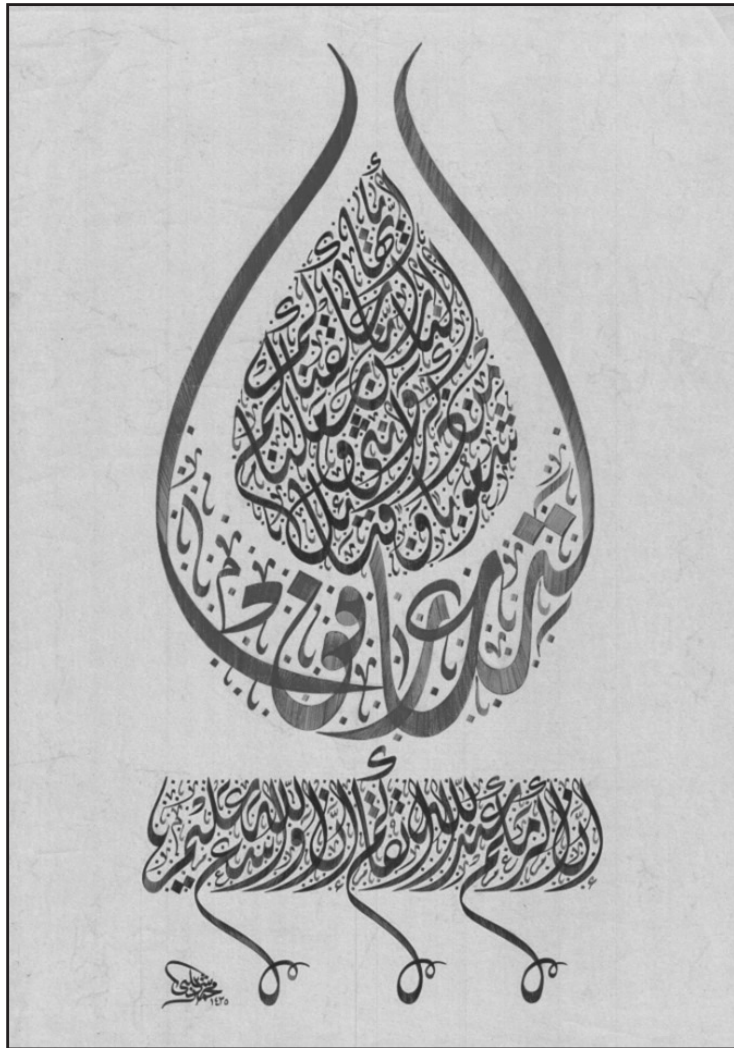 يا أيها
الناس إنا خلقناكم
من ذكر وأنثى وجعلناكم
شعوبا وقبائل
لتعارفوا
إن أكرمكم عند الله أتقاكم إن الله عليم
١٤٣٥